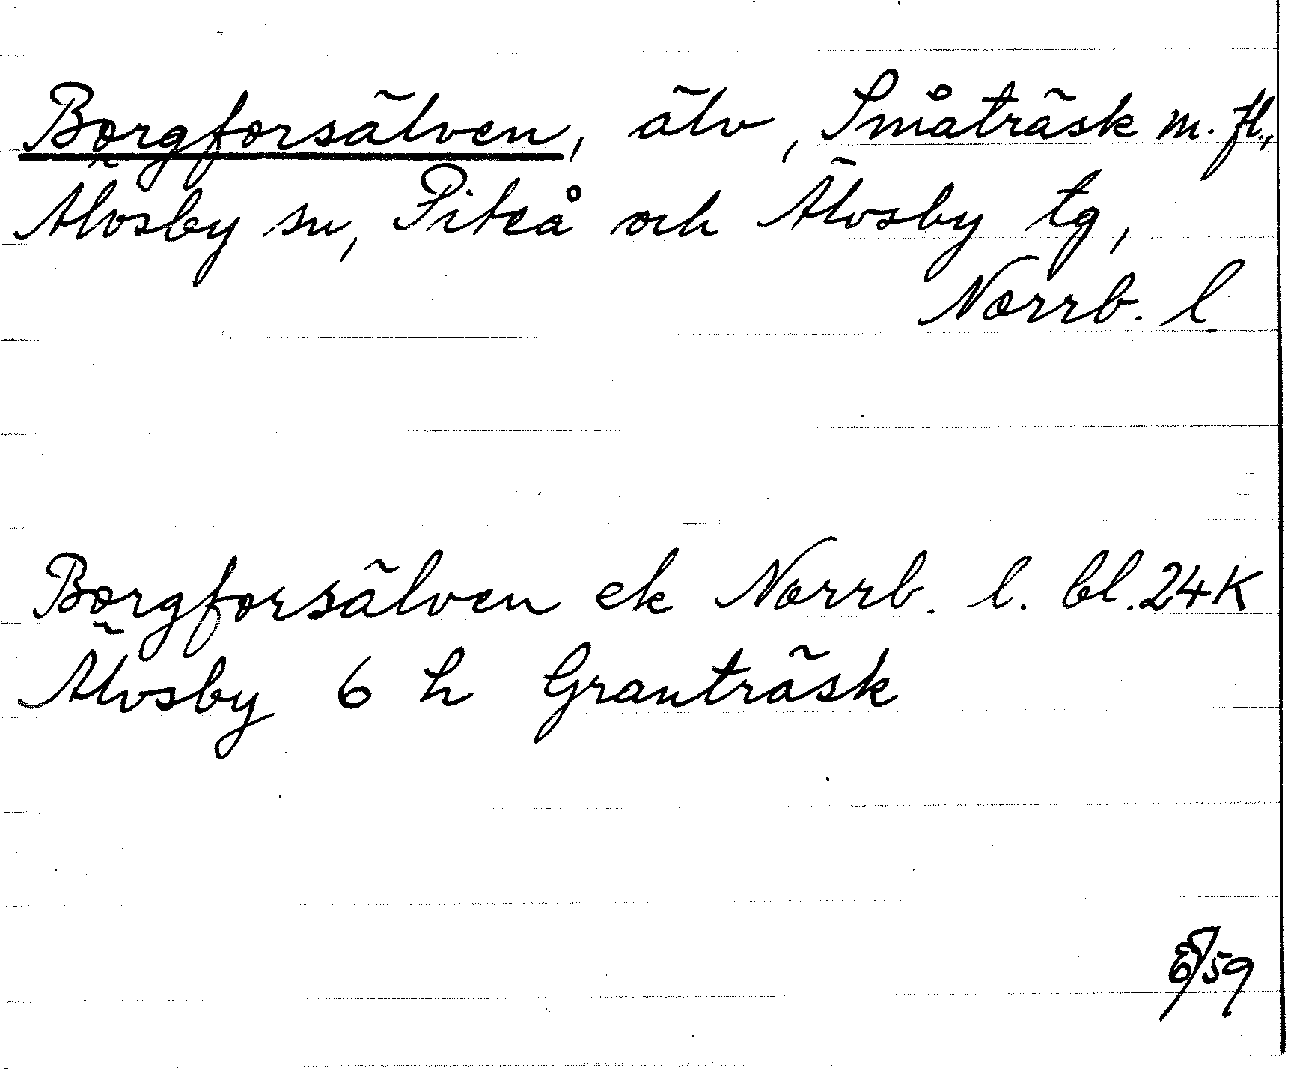 Borgforsälven, älv, Småträsk m. fl.,
Älvsby sn, Piteå och Älvsby tg,
Norrb. l
Borgforsälven ek Norrb. l. bl. 24K
Älvsby 6 h Granträsk